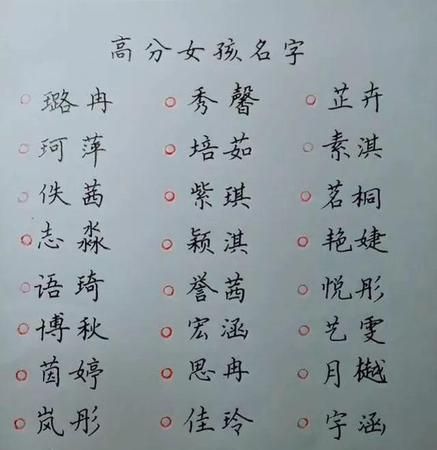 高分女孩名字
璐冉 秀馨 芷卉
珂萍 培茹 素淇
佚茜 紫琪 茗桐
志淼 颖淇 艳婕
语琦 誉茜 悦彤
博秋 宏涵 艺雯
茵婷 思冉 月樾
岚彤 佳玲 字涵